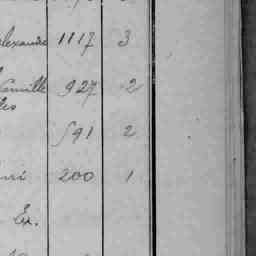 Alexandre 1117 3
Camille 927 2
les
591 2
200 1
Ex.